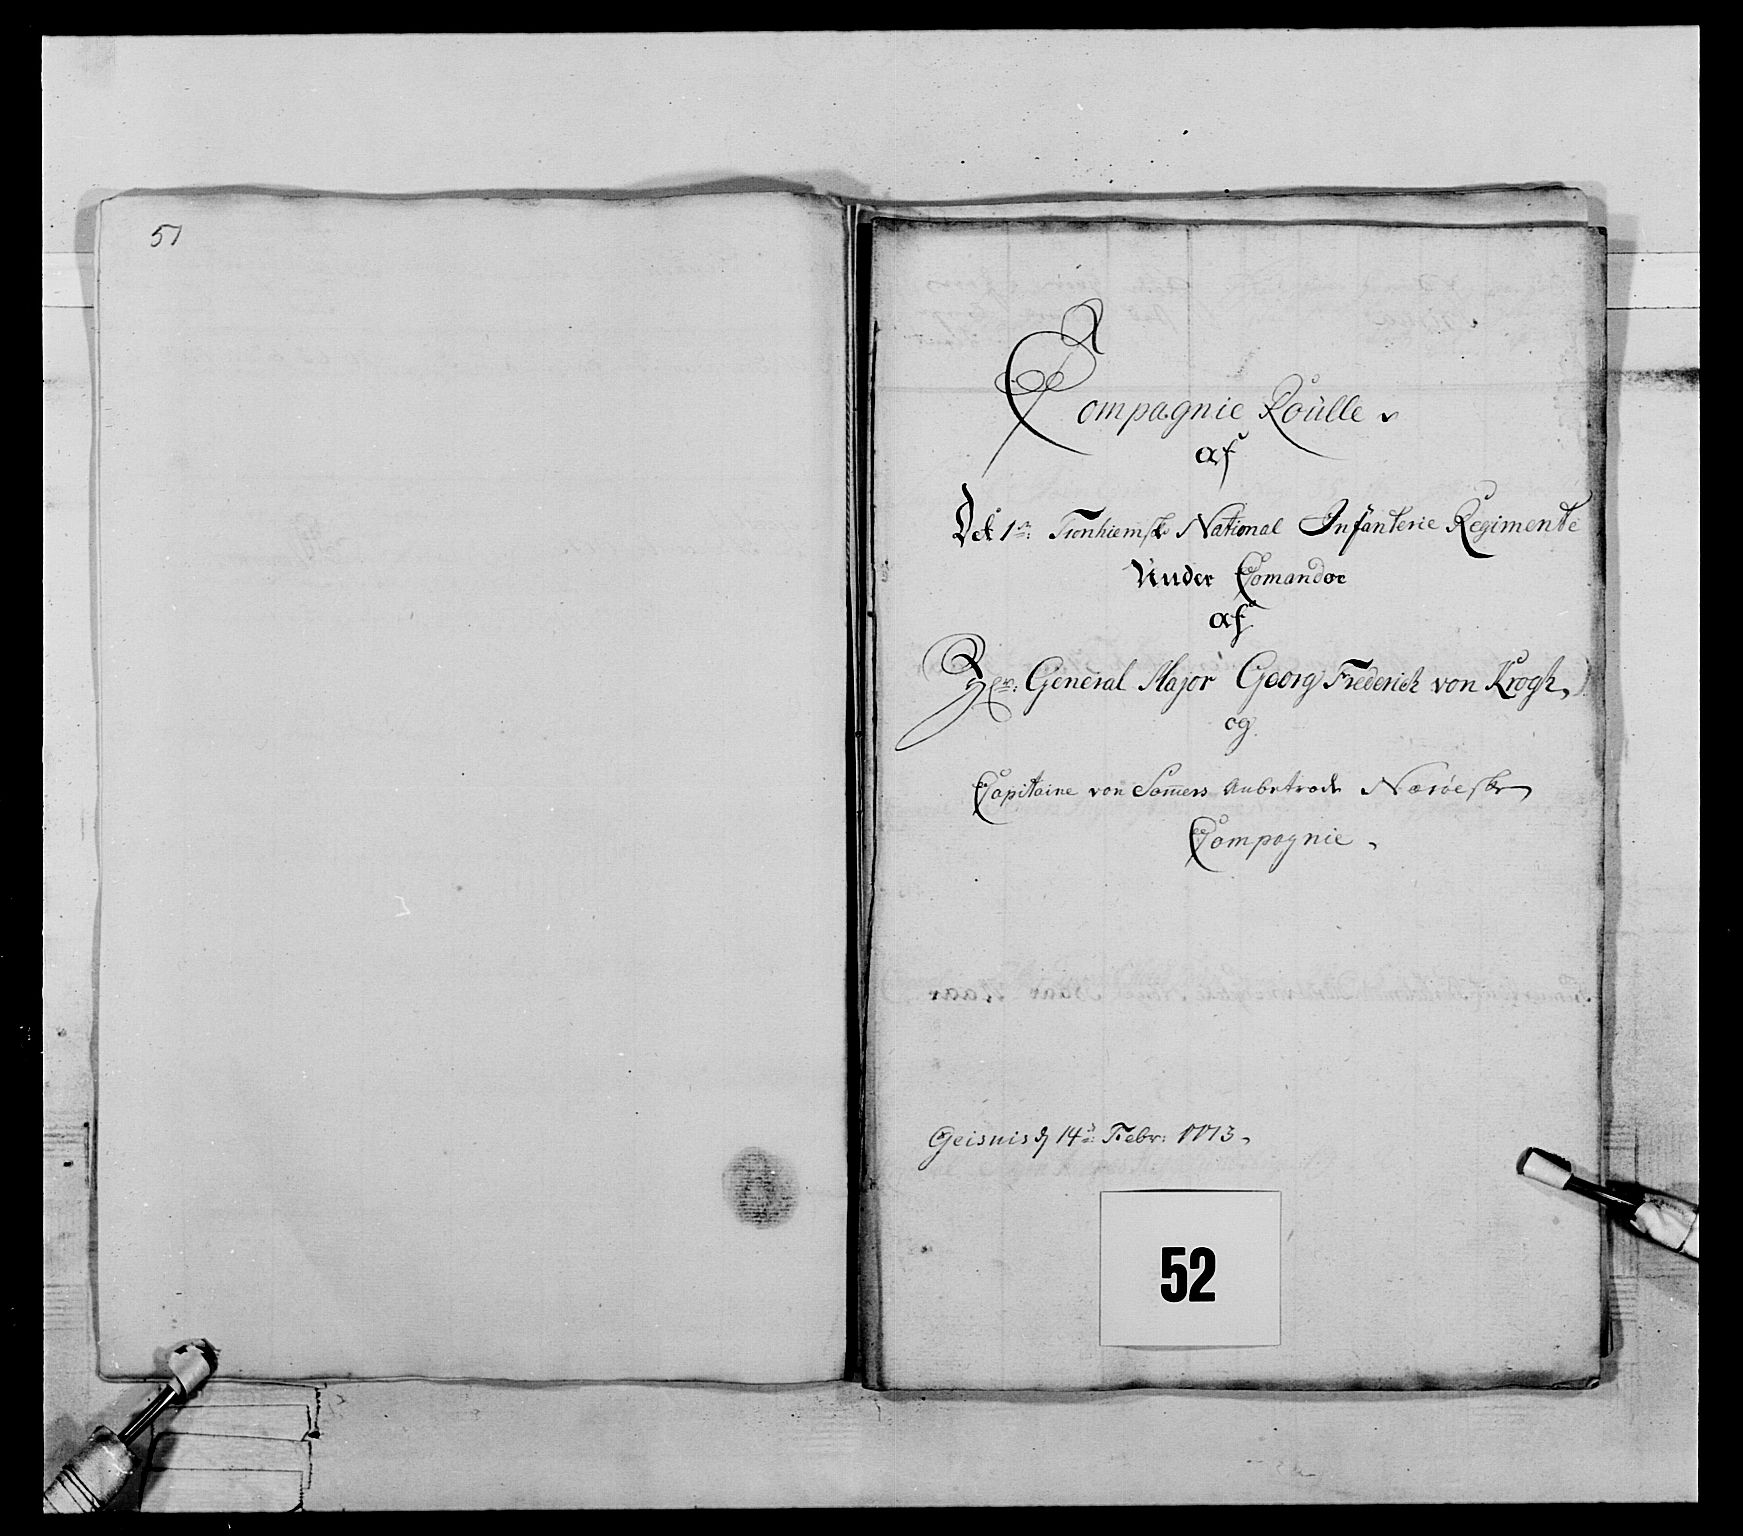 51
Compagnie Roülle
af
Det 1ste: Tronhiemske National Infanterie Regimente
Under Comandoe
af
Hr: General Major Georg Frederich von Krogh,
og
Capitaine von Somers Anbetrode Nærøeske
Compagnie.
Geisnis d 14de: Febr: 1773.
52